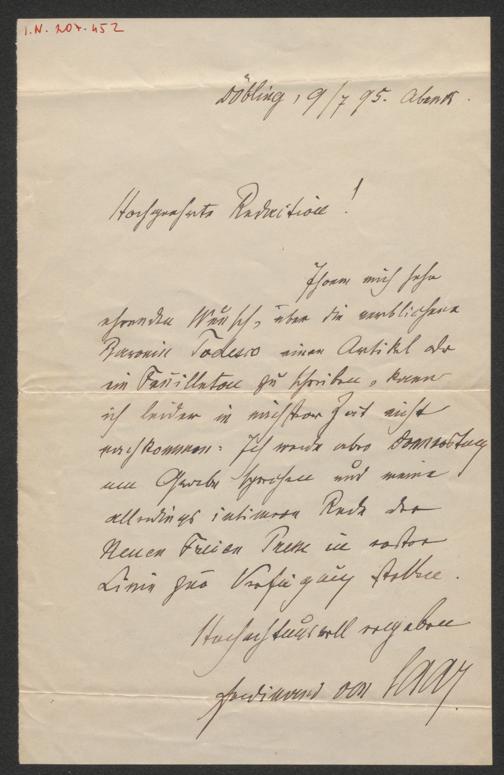 I.N. 207.452
Döbling, 9/7 95. Abends.
Hochgeehrte Redaction!
Ihrem mich sehr
ehrenden Wunsch, über die verblichene
Baronin Todesco einen Artikel oder
ein Feuilleton zu schreiben, kann
ich leider in nächster Zeit nicht
nachkommen. Ich werde aber Donnerstag
am Grabe sprechen und meine
allerdings intimere Rede der
Neuen Freien Presse in erster
Linie zur Verfügung stellen.
Hochachtungsvoll ergeben
Ferdinand von Saar.